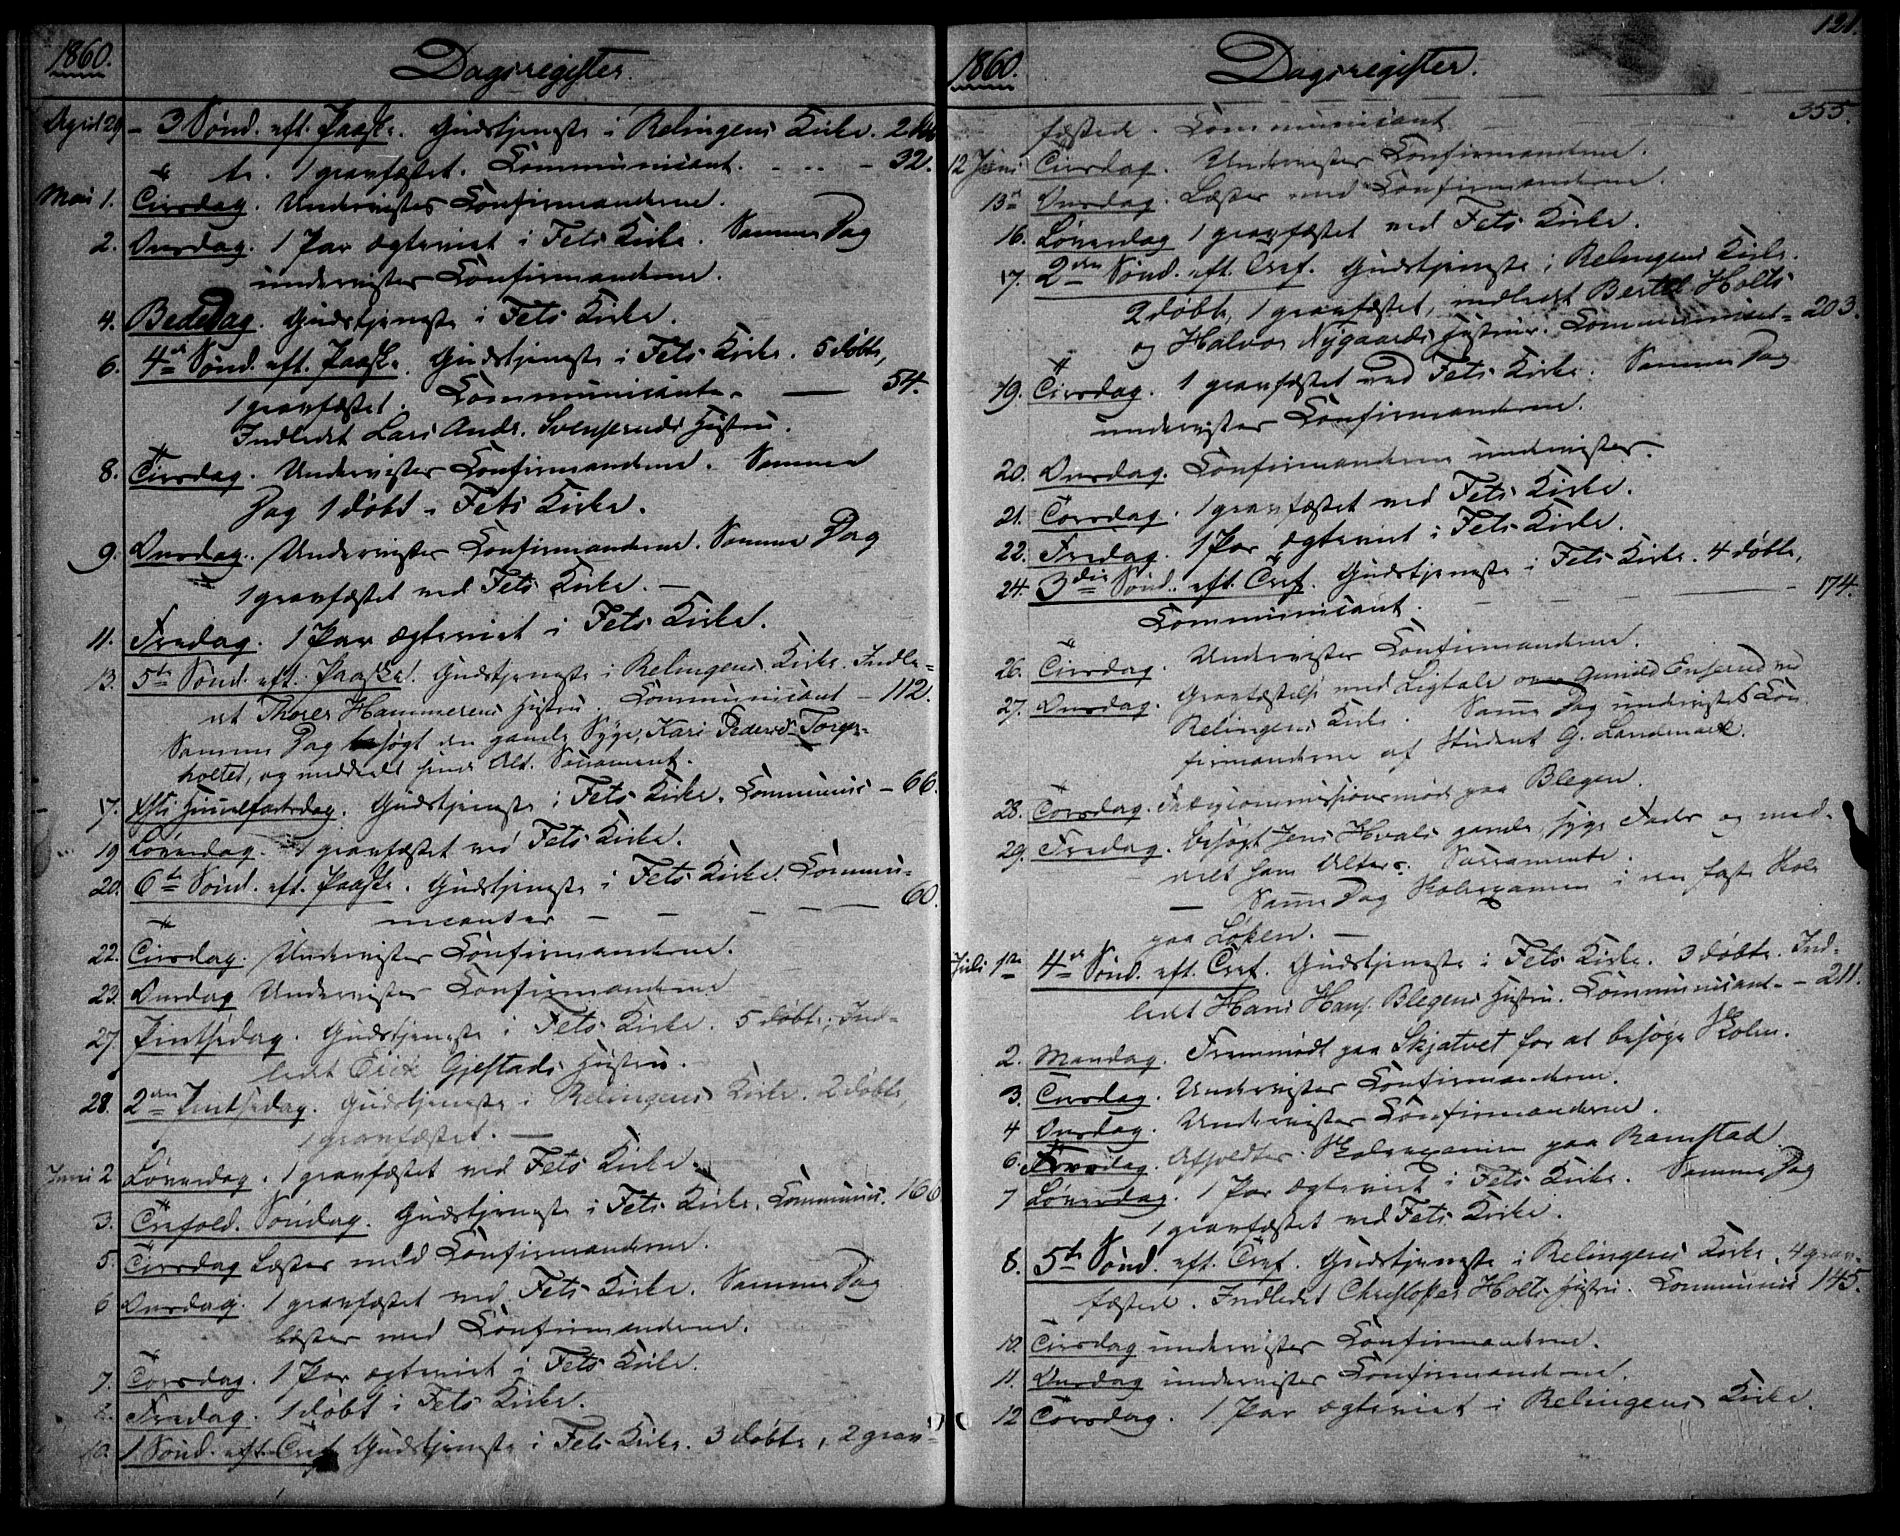 1860.
Dagsregister.
April 29 - 3 Sønd. eft. Paaske. Gudstjeneste i Relingens Kirke. 2 døb-
te. 1 gravfæstet. Communicant. - - - 32.
Mai 1. Tirsdag. Undervistes Confirmanderne.
2. Onsdag. 1 Par ægteviet i Fets Kirke. Samme Dag
undervistes Confirmanderne.
4. Bededag. Gudstjeneste i Fets Kirke.
6. 4de Sønd. eft. Paaske. Gudstjeneste i Fets Kirke. 5 døbte,
1 gravfæstet. Communicant. — 54.
Indledet Lars Andr. Svenseruds Hustru.
8. Tirsdag. Undervistes Confirmanderne. Samme
Dag 1 døbt i Fets Kirke.
9. Onsdag. Undervistes Confirmanderne. Samme Dag
1 gravfæstet ved Fets Kirke. —
11. Fredag. 1 Par ægteviet i Fets Kirke.
13. 5te Sønd. eft. Paaske. Gudstjeneste i Relingens Kirke. Indle-
det Thores Hammerens Hustru. Communicant - 112.
Samme Dag besøgt den gamle Syge, Kari Pedersd. Torger-
holtet, og meddeelt hende Alt. Sacrament.
17. Chr. Himmelfartsdag. Gudstjeneste i Fets Kirke. Communic. - 66.
19 Løverdag. 1 gravfæstet ved Fets Kirke.
20. 6te Sønd. eft. Paaske. Gudstjeneste i Fets Kirke. Commu-
nicanter - - - - 60.
22. Tirsdag. Undervistes Confirmanderne.
23. Onsdag Undervistes Confirmanderne
27. Pintsedag. Gudstjeneste i Fets Kirke. 5 døbte; Ind-
ledt Erik Gjestads Hustru.
28. 2den Pintsedag. Gudstjeneste i Relingens Kirke. 2 døbte
1 gravfæstet. —
Juni 2 Løverdag. 1 gravfæstet ved Fets Kirke.
3. Trefold. Søndag. Gudstjeneste i Fets Kirke. Communic. 166
5. Tirsdag Læstes med Confirmanderne.
6 Onsdag. 1 gravfæstet ved Fets Kirke. Samme Dag
læstes med Confirmanderne.
7. Torsdag. 1 Par ægteviet i Fets Kirke.
8. Fredag. 1 døbt i Fets Kirke.
10. 1 Sønd. eft. Tref. Gudstjeneste i Fets Kirke. 3 døbte, 2 grav-
121.
1860.
Dagsregister.
fæstede. Communicant 355.
12 Juni Tirsdag. Undervistes Confirmanderne.
13de Onsdag. Læstes med Confirmanderne.
16. Løverdag 1 gravfæstet ved Fets Kirke.
17. 2den Sønd. eft. Tref. Gudstjeneste i Relingens Kirke.
2 døbte, 1 gravfæstet, indledt Bertel Holts
og Halvor Nygaards Hustruer. Communicant - 203.
19. Tirsdag. 1 gravfæstet ved Fets Kirke. Samme Dag
undervistes Confirmanderne.
20. Onsdag. Confirmanderne undervistes.
21. Torsdag. 1 gravfæstet ved Fets Kirke.
22. Fredag. 1 Par ægteviet i Fets Kirke.
24. 3die Sønd. eft. Tref. Gudstjeneste i Fets Kirke. 4 døbte,
Communicant. - 174.
26. Tirsdag. Undervistes Confirmanderne.
27. Onsdag. Gravfæstelse med Ligtale over Gunild Enserud ved
Relingens Kirke. Samme Dag undervistes Con-
firmanderne af Student G. Landmark.
28. Torsdag. Fattigcommissionsmøde paa Blegen.
29. Fredag. besøgt Jens Hvals gamle, syge Fader og med-
delt ham Alters Sacramente.
— Samme Dag Skoleexamen i den faste Skole
paa Løken. —
Juli 1ste 4de Sønd. eft. Tref. Gudstjeneste i Fets Kirke. 3 døbte. Ind-
ledt Hans Hans. Blegens Hustru. Communicant - - 211.
2. Mandag. Fremmødt paa Skjatvet for at besøge Skolen.
3. Tirsdag. Undervistes Confirmanderne.
4 Onsdag. Undervistes Confirmanderne.
6. Fredag. Afholdtes Skoleexamen paa Ramstad.
7 Løverdag. 1 Par ægteviet i Fets Kirke. Samme Dag
1 gravfæstet ved Fets Kirke.
8. 5te Sønd. eft. Tref. Gudstjeneste i Relingens Kirke. 4 grav-
fæstede. Indledet Christopher Holts Hustru. Communic 145.
10. Tirsdag undervistes Confirmanderne.
11. Onsdag undervistes Confirmanderne.
12 Torsdag. 1 Par ægteviet i Relingens Kirke.